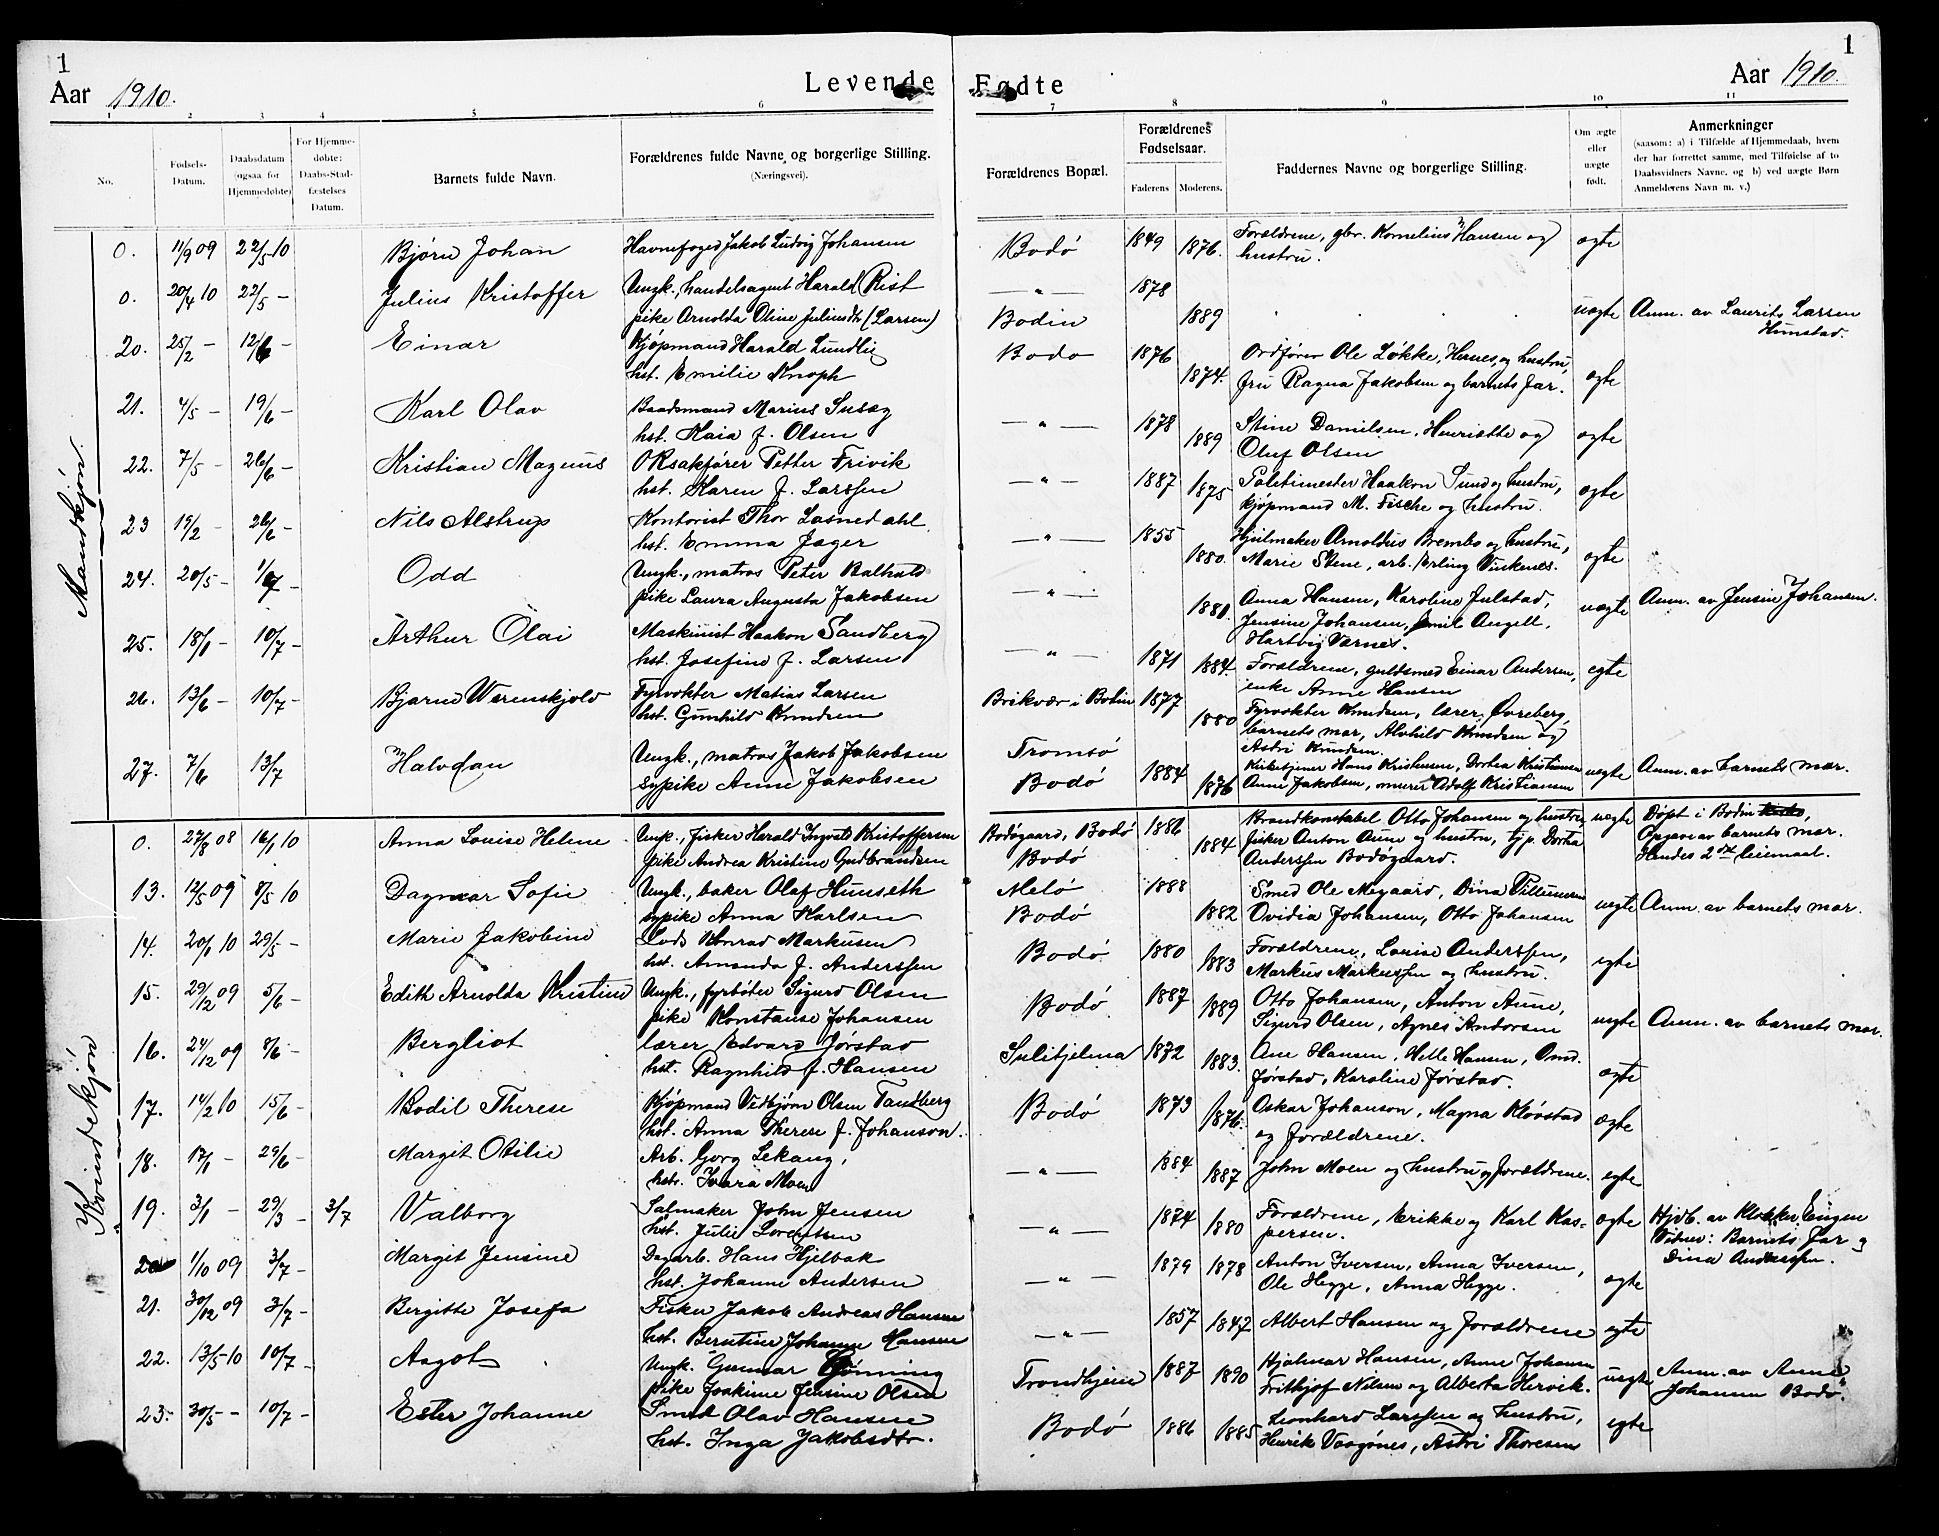 1
Aar 1910.
Levende
1 2 3 4 5 6
No.
Fødsels-Datum.
Daabsdatum (ogsaa for Hjemmedøbte)
For Hjemmedøbte: Daabs-Stadfæstelses Datum.
Barnets fulde Navn.
Forældrenes fulde Navne og borgerlige Stilling.
(Næringsvei).
Fødte
Aar 1910.
1
7 8 9 10 11
Forældrenes Bopæl.
Forældrenes Fødselsaar.
Faderens Moderens.
Faddernes Navne og borgerlige Stilling.
Om ægte eller uægte født.
Anmerkninger
(saasom: a) i Tilfælde af Hjemmedaab, hvem
der har forrettet samme, med Tilføielse af to
Daabsvidners Navne, og b) ved uægte Børn
Anmelderens Navn m. v.)
Mandkjøn
0. 11/9 09 22/5 10 Bjørn Johan Havnefoged Jakob Ludvig Johansen Bodø 1849 1876. Forældrene, gbr. Kornelius Hansen og ægte
hustru.
0. 20/4 10 22/5 — Julius Kristoffer Ungk., handelsagent Harald Rist —"— 1878
pike Arnolda Oline Juliusdtr (Larsen) Bodin 1889 uægte Anm. av Laurits Larsen
Hunstad.
20. 25/2 — 12/6 — Einar Kjøpmand Harald Lundlie Bodø 1876 Ordfører Ole Løkke, Hernes, og hustru,
hst. Emilie Knoph 1874. fru Ragna Jakobsen og barnets far. ægte
21. 4/5 — 19/6 — Karl Olav Baadsmand Marius Susæg —"— 1878 Stine Danielsen, Henriette og ægte
hst. Kaia f. Olsen 1889 Oluf Olsen
22. 7/5 — 26/6 — Kristian Magnus ORsakfører Petter Frivik —"— 1887 1875 Politimester Haakon Sund og hustru,
hst. Karen f. Larssen kjøpmand M. Fische og hustru. ægte
23 19/2 — 26/6 — Nils Alstrup Kontorist Thor Lasnedahl —"— 1855 Hjulmaker Arnoldus Brembo og hustru,
hst. Emma Jager 1880. Marie Stene, arb. Erling Vinkenes. ægte
24. 20/5 — 1/7 — Odd Ungk., matros Peter Balhald —"— Anna Hansen, Karoline Julstad,
pike Laura Augusta Jakobsen 1881. Jensine Johansen, Emil Angell, uægte Anm. av Jensine Johansen.
Hartvig Værnes.
25. 18/1 — 10/7 — Arthur Olai Maskinist Haakon Sandberg —"— 1871 1884. Forældrene, guldsmed Einar Andersen, egte
hst. Josefine f. Larsen enke Anne Hansen
26. 13/6 — 10/7 — Bjarne Werenskjold Fyrvokter Matias Larsen Briksvær i Bodin 1877 Fyrvokter Knudsen, lærer Øvreberg,
hst. Gunhild Knudsen 1880 barnets mor, Alvhild Knudsen og
Astri Knudsen.
27. 7/6 13/7 Halvdan Ungk., matros Jakob Jakobsen Tromsø Kirketjener Hans Kristensen, Dortea Kristiansen
sypike Anne Jakobsen Bodø 1884 1876 Anne Jakobsen, murer Adolf Kristiansen uægte Anm. av barnets mor.
Kvindekjøn
0. 27/8 08 16/1 10 Anna Louise Helene Ungk., fisker Harald Ingvald Kristoffersen Bodøgaard, Bodø 1886 Brandkonstabel Otto Johansen og hustru uægte Døpt i Bodin
pike Andrea Kristine Gudbrandsen Bodø 1884 fisker Anton Aune og hustru, tjp. Dortea Opgave av barnets mor.
Anderssen Bodøgaard. Hendes 2det leiemaal.
13. 12/5 09 8/5 10 Dagmar Sofie Ungk., baker Olaf Hunseth Melø 1888 Smed Ole Megaard, Dina
sypike Anna Karlsen Bodø 1882 Ovidia Johansen, Otto Johansen uegte Anm. av barnets mor.
14. 20/1 10 29/5 — Marie Jakobine Lods Konrad Markusen Bodø 1880 1883 Forældrene, Louise Anderssen, egte
hst. Amanda f. Anderssen Markus Markussen og hustru.
15. 29/12 09 5/6 — Edith Arnolda Kristine Ungk., fyrbøter Sigurd Olsen Bodø 1887 1889 Otto Johansen, Anton Aune,
pike Konstanse Johansen Sigurd Olsen, Agnes Andorsen uegte Anm. av barnets mor.
16. 24/12 09 8/6 — Bergliot lærer Edvard Jørstad Sulitjelma 1872 1883. Ane Hansen, Helle Hansen, Omd.
hst. Ragnhild f. Hansen Jørstad, Karoline Jørstad. ægte
17. 14/2 10 15/6 — Bodil Therese Kjøpmand Vedbjørn Olsen Tandberg Bodø 1873 1876. Oskar Johanson, Magna Kløvstad ægte
hst. Anna Therese f. Johanson. og forældrene.
18. 17/1 — 29/6 — Margit Otilie Arb. Georg Lekang, —"— 1884 1887 John Moen og hustru og forældrene. egte
hstr. Ivara Moen
19. 3/1 — 29/3 — 3/7 Valborg Salmaker John Jensen —"— 1874 1880 Forældrene, Erikke og Karl Kas= ægte Hjdb. av Klokker Engen
hst. Julie Lorentsen persen. Vidner: Barnets far og
Dina Anderssen.
20 1/10 09 3/7 — Margit Jensine Dagarb. Hans Hjelbak —"— 1879 1878 Anton Iversen, Anna Iversen,
hst. Johanne Andersen Ole Hegge, Anna Hegge. ægte
21. 30/12 09 3/7 — Bergitte Josefa Fisker Jakob Andreas Hansen —"— 1857 1847 Albert Hansen og forældrene egte
hst. Berntine Johanne Hansen
22. 13/5 10 10/7 — Aagot Ungk. Gunnar Grønning Trondhjem 1887 1890 Hjalmar Hansen, Anne Johansen uegte Anm. av Anne
pike Joakime Jensine Olsen Fritkjof Nilsen og Alberta Hervik. Johansen Bodø.
23. 30/5 — 10/7 — Ester Johanne Smed Olav Hansen Bodø 1886 1885 Leonhard Larssen og hustru, egte
hst. Inga Jakobsdtr. Henrik Vaagønes, Astri Thoresen